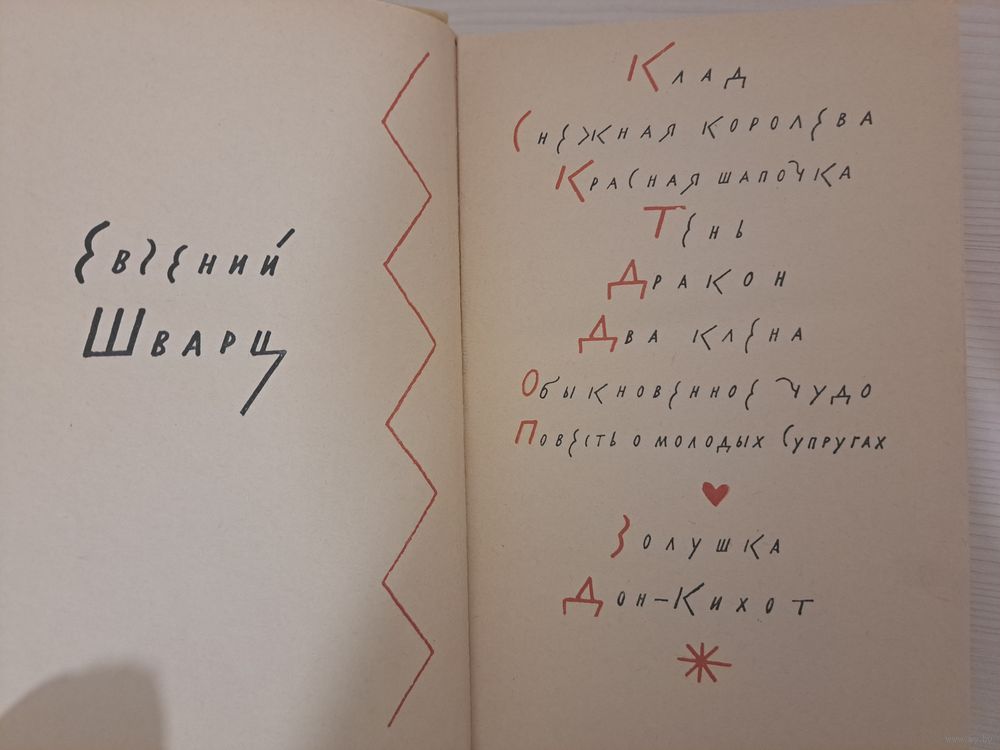 Евгений
Шварц
Клад
Снежная королева
Красная шапочка
Тень
Дракон
Два клена
Обыкновенное чудо
Повесть о молодых супругах
Золушка
Дон-Кихот